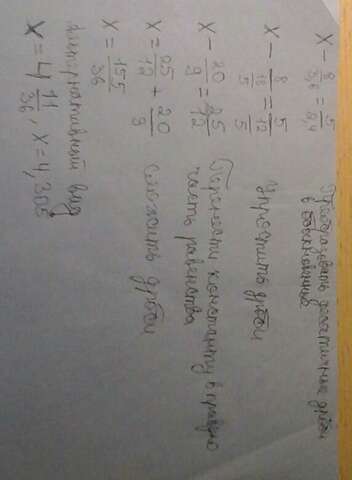 x - 8/3,6 = 5/2,4
Преобразовать десятичные дроби
в обыкновенные
x - 8/(18/5) = 5/(12/5)
Упростить дроби
x - 20/9 = 25/12
Перенести константу в правую
часть равенства
x = 25/12 + 20/9
Сложить дроби
x = 155/36
Альтернативный вид
x = 4 11/36, x = 4,305